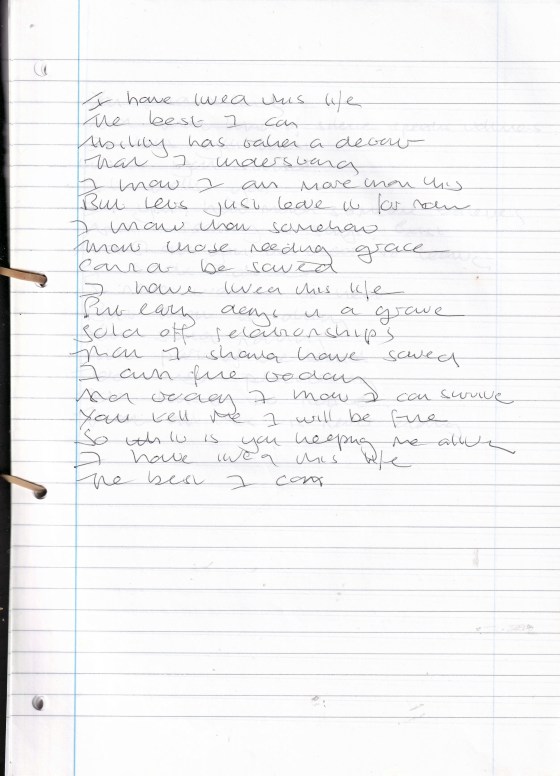 I have lived this life
The best I can
Ability has taken a detour
That I understand
I know I am more than this
But lets just leave it for now
I know that somehow
those needing grace
Cannot be saved
I have lived this life
Put early days in a grave
Sold off relationships
That I should have saved
I am fine today
today I know I can survive
You tell me I will be fine
So is you keeping me alive
I have lived this life
The best I can